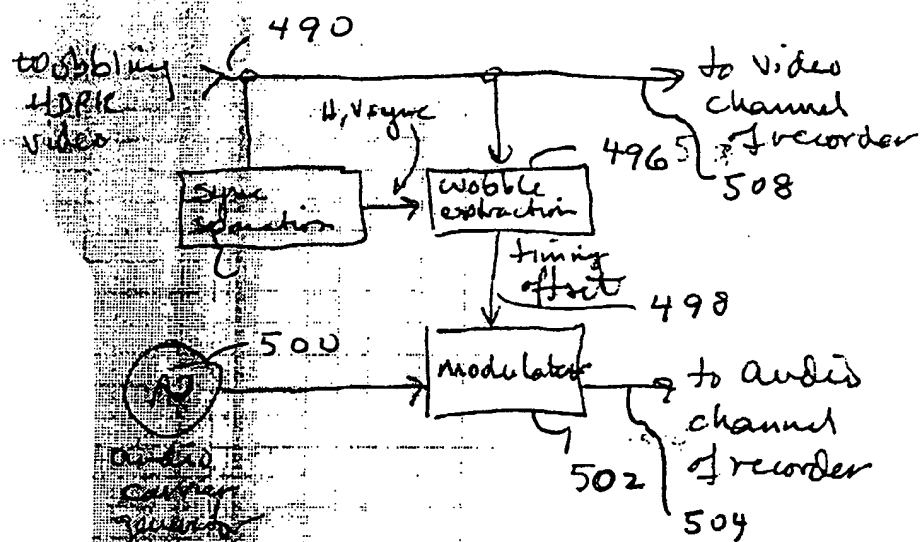 490
wobbling
HDPR
video
H, Vsync
to video
channel
of recorder
496
508
sync
separation
wobble
extraction
timing
offset
498
500
modulator
to audio
channel
of recorder
502
504
audio
carrier